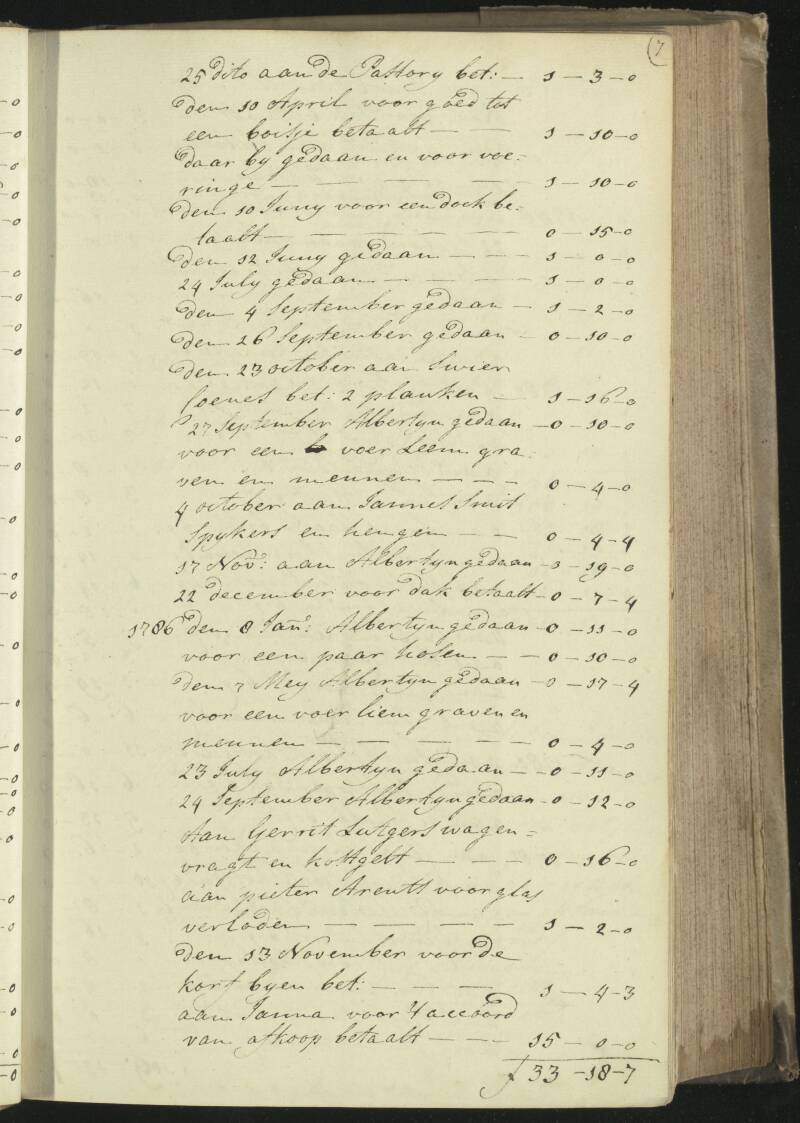 7
25 dito aan de Pastory bet: — 1 — 3 — 0
den 10 April voor goed tot
een boisje betaalt — — 1 — 10 — 0
daar by gedaan en voor voe-
ringe — — — — — 1 — 10 — 0
den 10 Juny voor een doek be-
taalt — — — — — 0 — 15 — 0
den 12 Juny gedaan — — 1 — 0 — 0
24 July gedaan — — — 1 — 0 — 0
den 4 September gedaan — 1 — 2 — 0
den 26 September gedaan — 0 — 10 — 0
den 23 october aan Swier
Coenes bet: 2 planken — 1 — 16 — 0
27 September Albertyn gedaan — 0 — 10 — 0
voor een voer Leem gra-
ven en mennen — — — 0 — 4 — 0
4 october aan Jannes Smit
Spykers en hengen — — 0 — 4 — 4
17 Nov: aan Albertyn gedaan — 1 — 19 — 0
22 december voor dak betaalt — 0 — 7 — 4
1786 den 8 Jan: Albertyn gedaan — 0 — 11 — 0
voor een paar hosen — — 0 — 10 — 0
den 7 Mey Albertyn gedaan — 0 — 17 — 4
voor een voer liem graven en
mennen — — — — — 0 — 4 — 0
23 July Albertyn gedaan — — 0 — 11 — 0
24 September Albertyn gedaan — 0 — 12 — 0
Aan Gerrit Lutgers wagen =
vragt en kostgelt — — — 0 — 16 — 0
aan pieter Arents voor glas
verloden — — — — 1 — 2 — 0
den 13 November voor de
korf byen bet: — — — 1 — 4 — 3
aan Janna voor 't accoord
van afkoop betaalt — — — 15 — 0 — 0
f 33 — 18 — 7